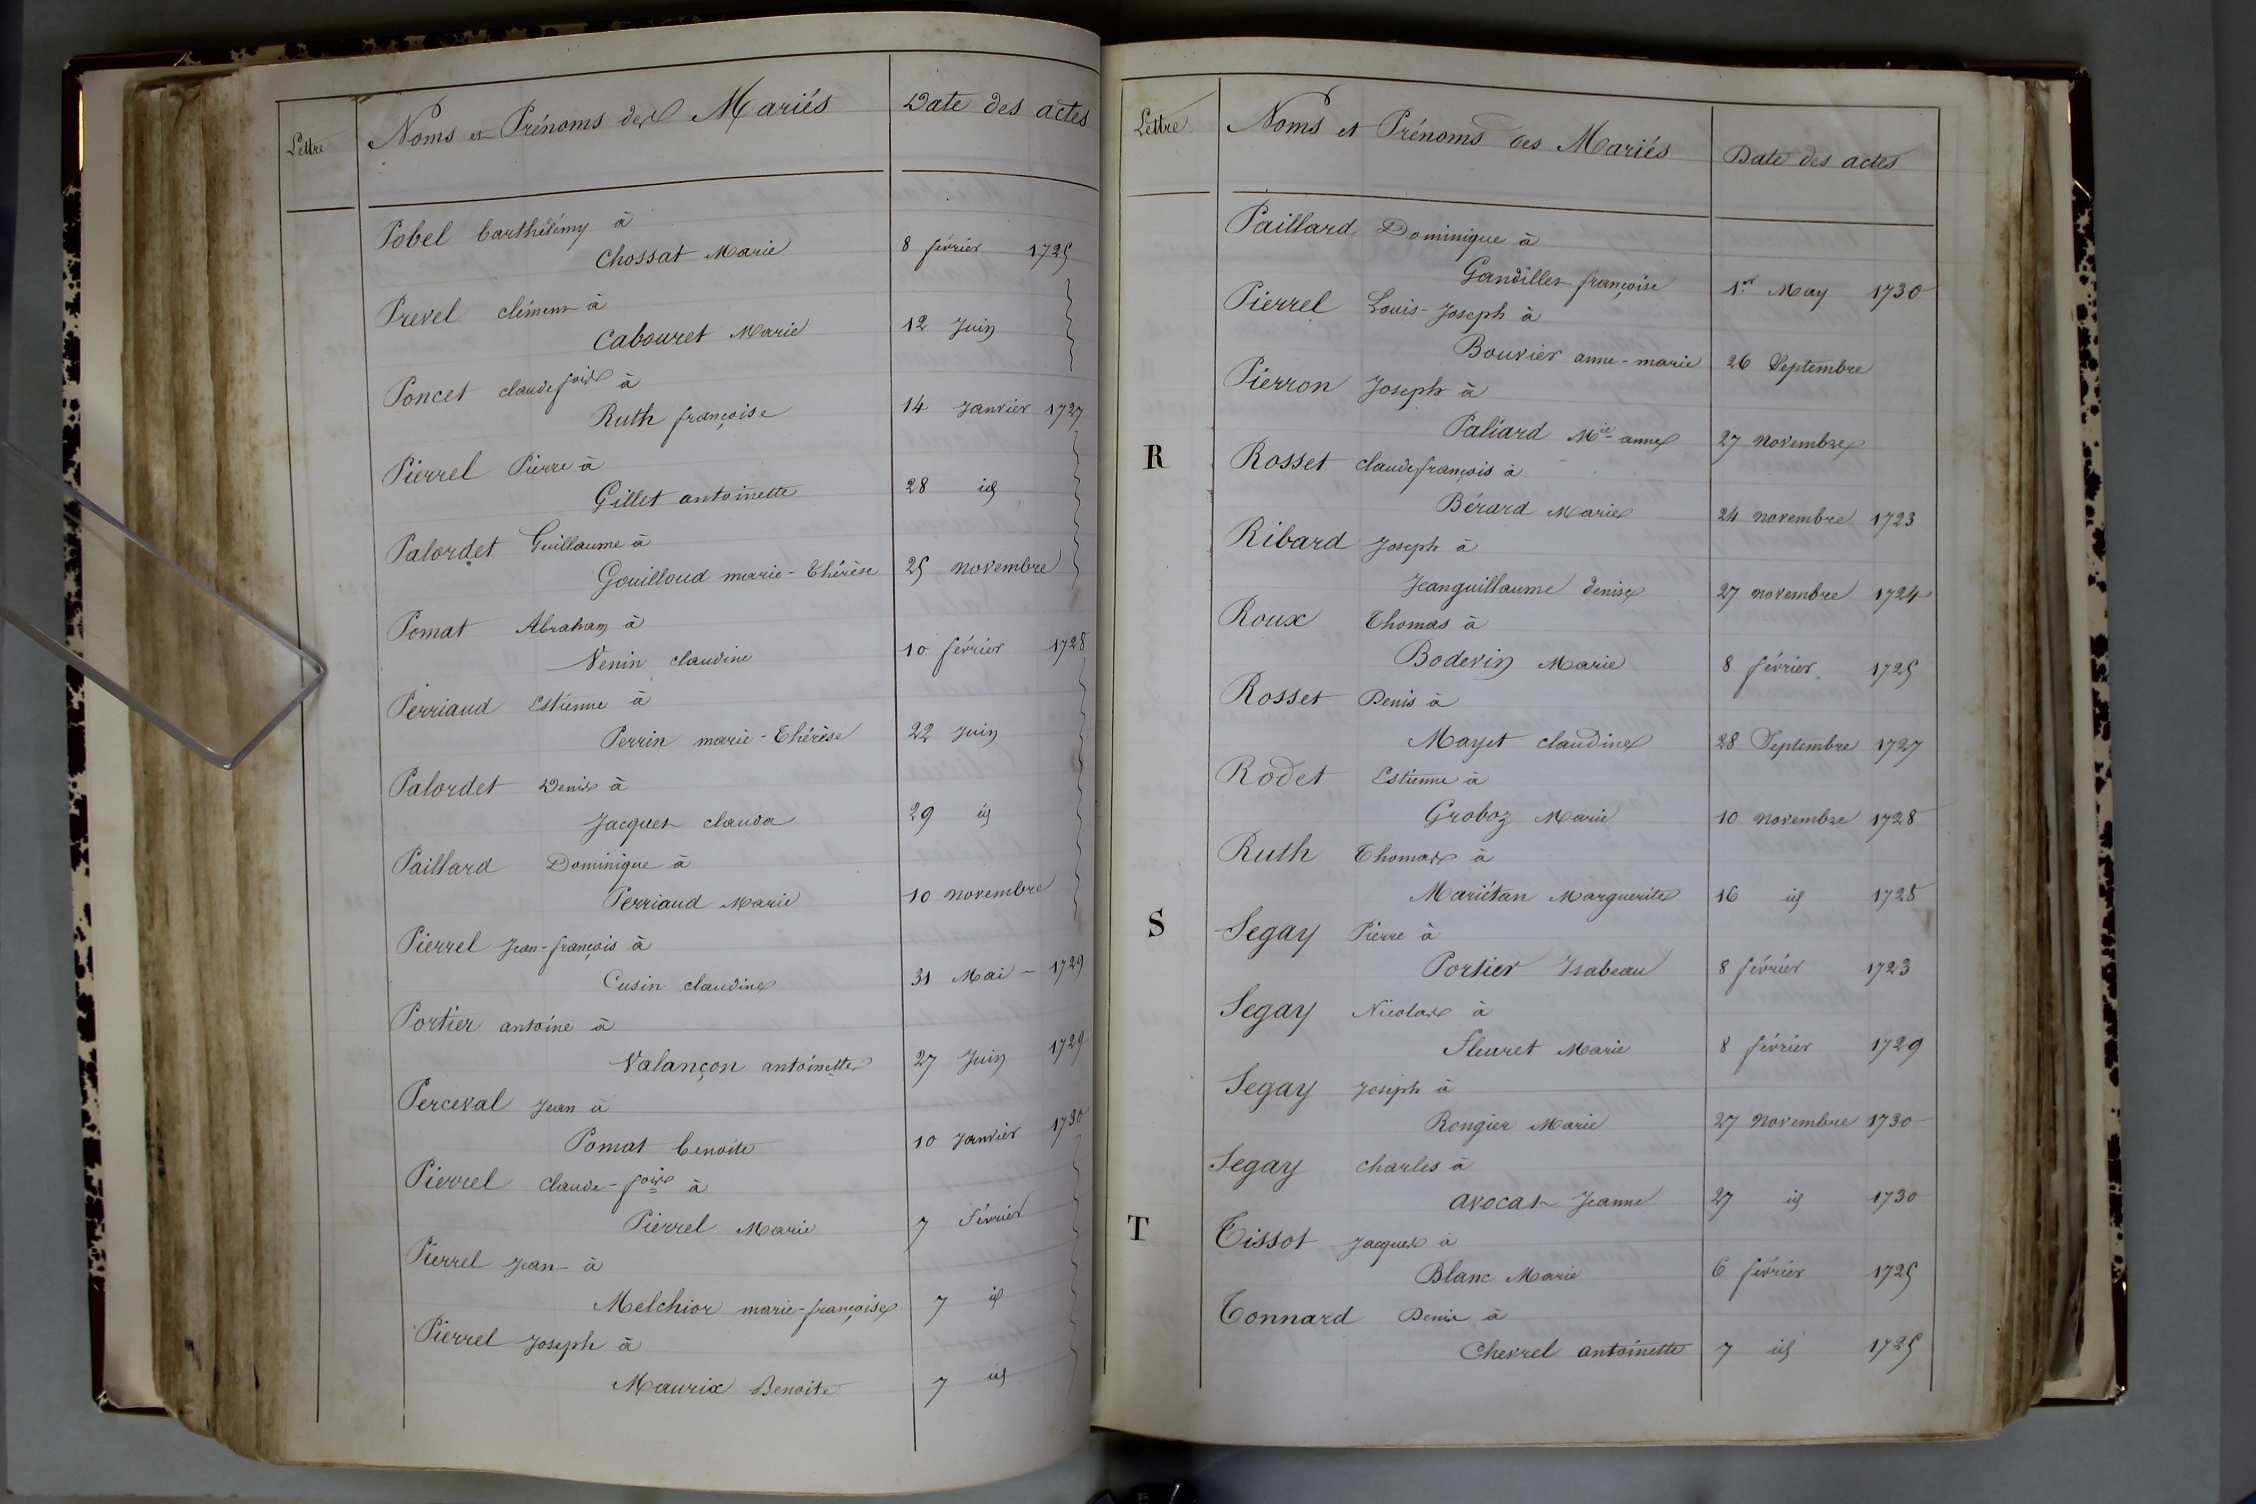 Lettre Noms et Prénoms des Mariés Date des actes
Pobel barthélémy à
Chossat Marie 8 février 1725
Prevel clément à
Cabouret Marie 12 Juin
Poncet claude fois à
Ruth françoise 14 Janvier 1727
Pierrel Pierre à
Gillet antoinette 28 id
Palordet Guillaume à
Gouilloud marie-Thérèse 25 novembre
Pomat Abraham à
Venin claudine 10 février 1728
Perriaud Estienne à
Perrin marie-Thérèse 22 Juin
Palordet Denis à
Jacquet clauda 29 id
Paillard Dominique à
Perriaud Marie 10 novembre
Pierrel Jean-françois à
Cusin claudine 31 Mai - 1729
Portier antoine à
Valançon antoinette 27 Juin 1729
Perceval Jean à
Pomat benoite 10 Janvier 1730
Pierrel claude-fois à
Pierrel Marie 7 février
Pierrel Jean à
Melchior marie-françoise 7 id
Pierrel Joseph à
Maurix Benoite 7 id
Lettre Noms et Prénoms des Mariés Date des actes
Paillard Dominique à
Gandillet françoise 1er May 1730
Pierrel Louis-Joseph à
Bouvier anne-marie 26 Septembre
Pierron Joseph à
Paliard Mie anne 27 novembre
R Rosset claudefrançois à
Bérard Marie 24 novembre 1723
Ribard Joseph à
Jeanguillaume denise 27 novembre 1724
Roux Thomas à
Bodevin Marie 8 février 1725
Rosset Denis à
Mayet claudine 28 Septembre 1727
Rodet Estienne à
Groboz Marie 10 novembre 1728
Ruth Thomas à
Mariétan Marguerite 16 id 1728
S Segay Pierre à
Portier Isabeau 8 février 1723
Segay Nicolas à
Fleuret Marie 8 février 1729
Segay Joseph à
Rongier Marie 27 Novembre 1730
Segay Charles à
avocat Jeanne 27 id 1730
T Tissot Jacques à
Blanc Marie 6 février 1725
Tonnard Denis à
Chevrel antoinette 7 id 1725